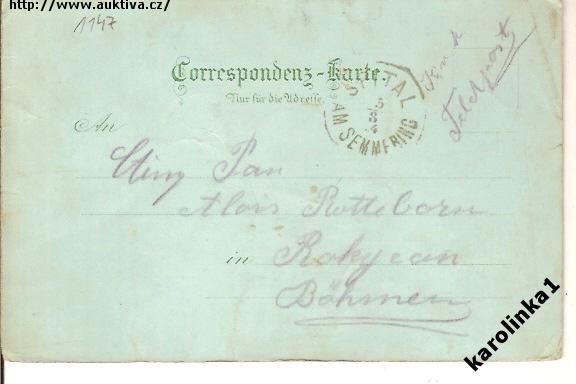 http://www.auktiva.cz/
1147
Correspondenz-Karte.
Nur für die Adresse.
SPITAL
AM SEMMERING
Feldpost
An
Pan
Alois Rotteborn
in Rokycan
Böhmen
karolinka1